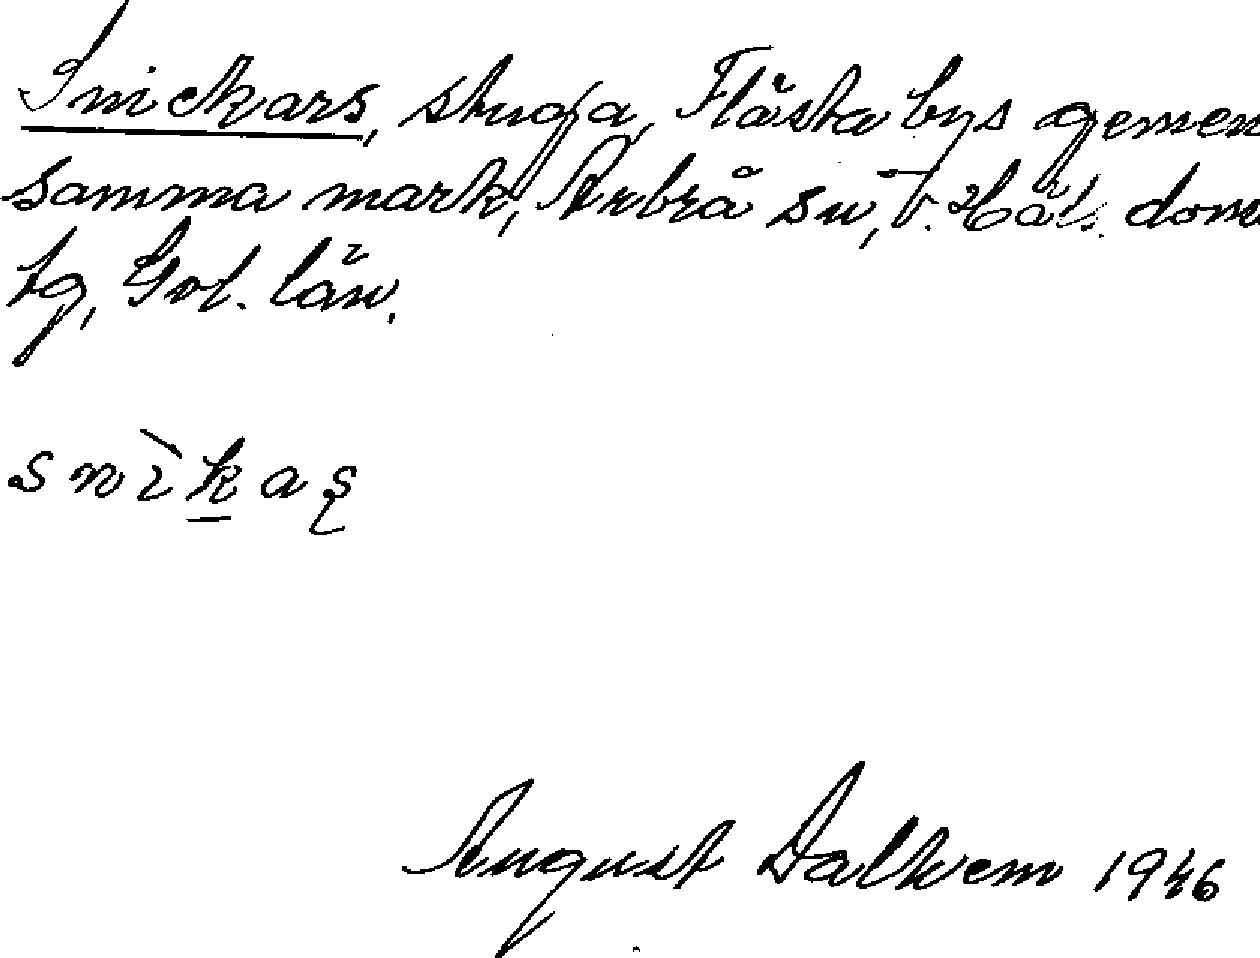 Snickars, stuga, Flästa bys gemen
samma mark, Arbrå sn, V. Häls. doms
tg, Gvl. län.
snìk̲aʂ
August Dalkvem 1946